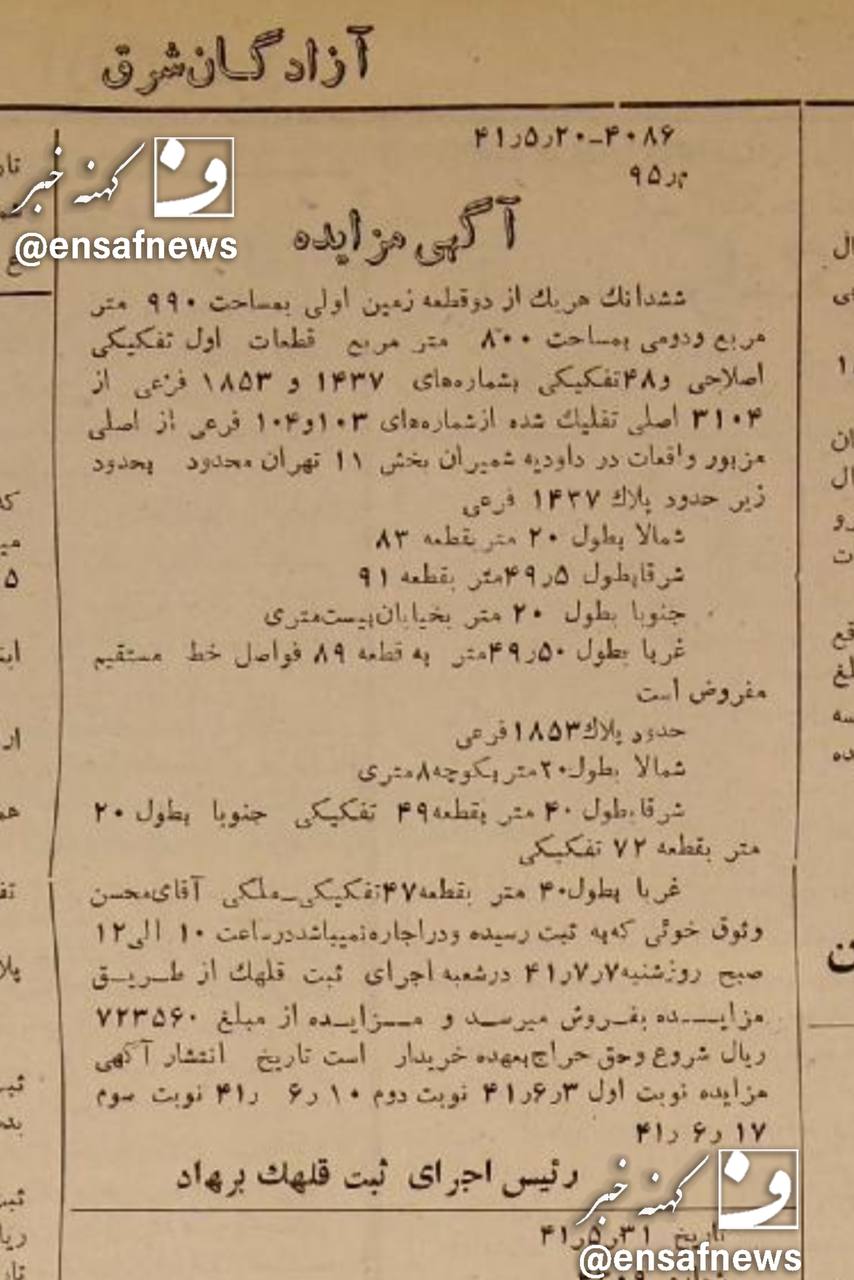 آزادگان شرق
۴۰۸۶-۴۱ر۵ر۲۰
م‍ر۹۵
کهنه خبر
@ensafnews
آگهی مزایده
ششدانك هريك از دو قطعه زمین اولی بمساحت ۹۹۰ متر
مربع ودومی بمساحت ۸۰۰ متر مربع قطعات اول تفکیکی
اصلاحی و۴۸تفکیکی بشماره‌های ۱۴۳۷ و ۱۸۵۳ فرعی از
۳۱۰۴ اصلی تفلیك شده ازشماره‌های ۱۰۳و۱۰۴ فرعی از اصلی
مزبور واقعات در داودیه شمیران بخش ۱۱ تهران محدود بحدود
زیر حدود پلاك ۱۴۳۷ فرعی
شمالا بطول ۲۰ متر بقطعه ۸۳
شرقابطول ۴۹ر۵متر بقطعه ۹۱
جنوبا بطول ۲۰ متر بخیابان‌بیست‌متری
غربا بطول ۴۹ر۵۰متر به قطعه ۸۹ فواصل خط مستقیم
مفروض است
حدود پلاك۱۸۵۳فرعی
شمالا بطول۲۰متر بکوچه۸متری
شرقا بطول ۴۰ متر بقطعه۴۹ تفکیکی جنوبا بطول ۲۰
متر بقطعه ۷۲ تفکیکی
غربا بطول۴۰ متر بقطعه۴۷تفکیکی-ملکی آقای‌محسن
وثوق خوئی که‌به ثبت رسیده ودراجاره‌نمیباشددرساعت ۱۰ الی۱۲
صبح روزشنبه۴۱ر۷ر۷ درشعبه اجرای ثبت قلهك از طریق
مزایده بفروش میرسد و مزایده از مبلغ ۷۲۳۵۶۰
ریال شروع وحق حراج‌بعهده خریدار است تاریخ انتشار آگهی
مزایده نوبت اول ۴۱ر۶ر۳ نوبت دوم ۱۰ ر۶ ر۴۱ نوبت سوم
۱۷ ر۶ ر۴۱
رئیس اجرای ثبت قلهك برهاد
کهنه خبر
تاریخ ۴۱ر۵ر۳۱
@ensafnews